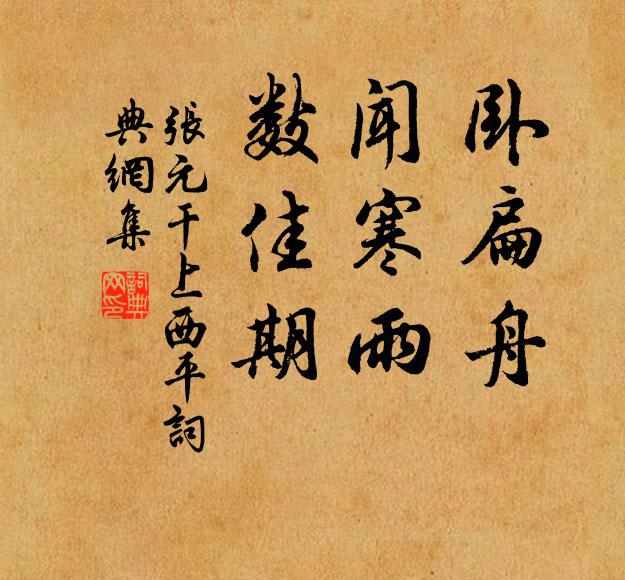 卧扁舟
闻寒雨
数佳期
張元干上西平詞
典網集
詞典网印